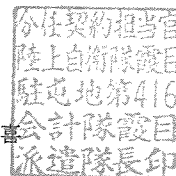 分任契約担当官
陸上自衛隊霞目
駐屯地第416
会計隊霞目
派遣隊長印